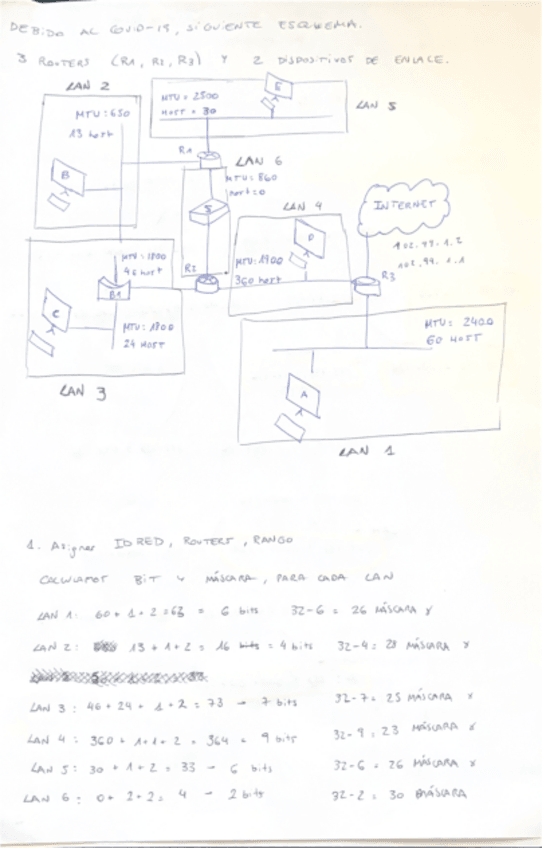 DEBIDO AL COVID-19, SIGUIENTE ESQUEMA.
3 ROUTERS (R1, R2, R3) Y 2 DISPOSITIVOS DE ENLACE.
LAN 2
MTU: 650
13 host
B
MTU = 2500
HOST = 30
E
LAN 5
R1
LAN 6
MTU: 860
host = 0
S
LAN 4
D
MTU: 1900
360 host
INTERNET
102.99.1.2
102.99.1.1
R3
R2
MTU: 1800
46 host
B1
C
MTU: 1800
24 HOST
LAN 3
MTU: 2400
60 HOST
A
LAN 1
1. Asignar ID RED, ROUTERS, RANGO
CALCULAMOS BIT Y MÁSCARA, PARA CADA LAN
LAN 1: 60 + 1 + 2 = 63 = 6 bits 32-6 = 26 MÁSCARA
LAN 2: 13 + 1 + 2 = 16 = 4 bits 32-4 = 28 MÁSCARA
LAN 3: 46 + 24 + 1 + 2 = 73 - 7 bits 32-7 = 25 MÁSCARA
LAN 4: 360 + 1+1 + 2 = 364 = 9 bits 32-9 = 23 MÁSCARA
LAN 5: 30 + 1 + 2 = 33 - 6 bits 32-6 = 26 MÁSCARA
LAN 6: 0 + 2 + 2 = 4 - 2 bits 32-2 = 30 MÁSCARA